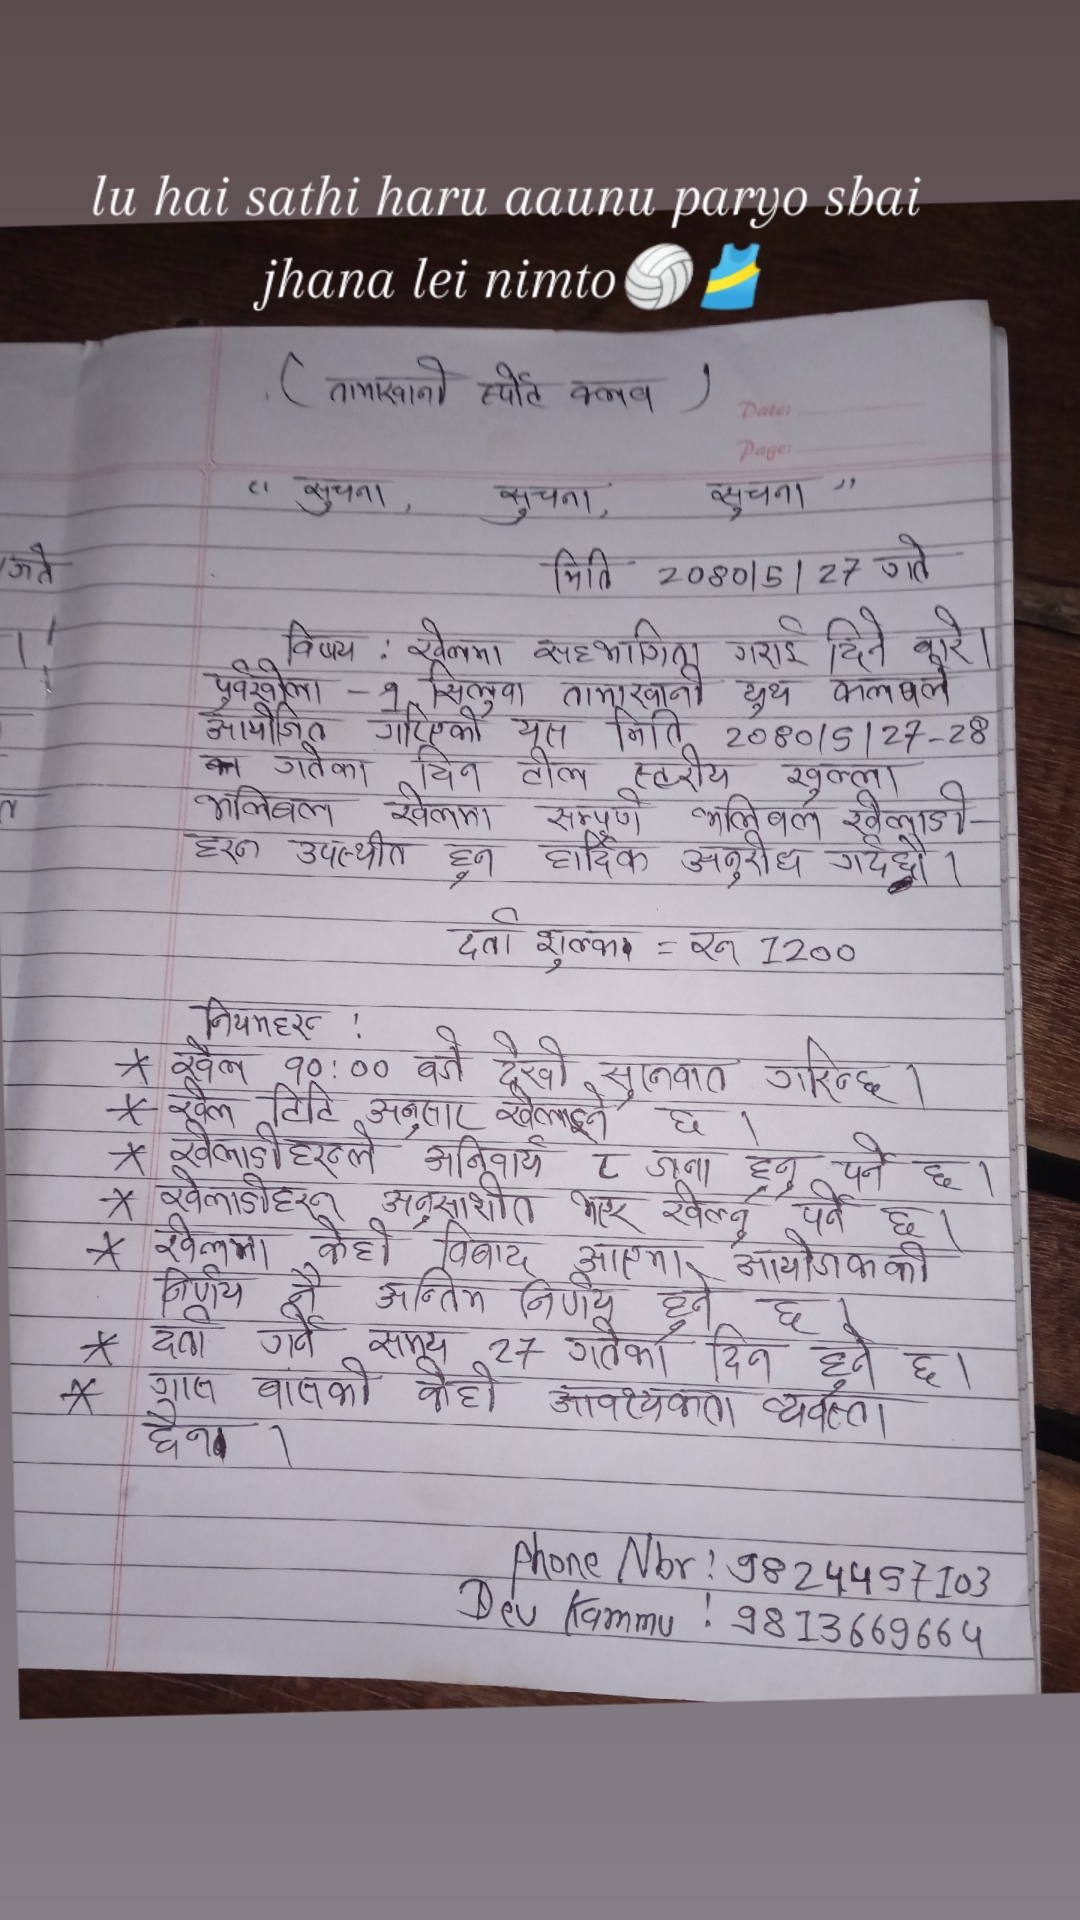 lu hai sathi haru aaunu paryo sbai
jhana lei nimto🏐🎽
( तामाखानी र्स्पोट क्लव )
Date:
Page:
“ सुचना, सुचना, सुचना ”
मिति 2080/5/27 गते
विषय : खेलमा सहभागिता गराई दिने बारे।
पुर्वखोला - १ सिलुवा तामाखानी यूथ कलबले
आयोजित गरिएको यस मिति 2080/5/27-28
गतेका दिन टोल स्तरीय खुल्ला
भलिबल खेलमा सम्पूर्ण भलिबल खेलाडी-
हरू उपस्थीत हुन हार्दिक अनुरोध गर्दछौ।
दर्ता शुल्क = रू 1200
नियमहरू :
* खेल १०:०० बजे देखी सुरूवात गरिन्छ।
* खेल टिटि अनुसार खेलाइने छ।
* खेलाडीहरूले अनिवार्य ८ जना हुनु पर्ने छ।
* खेलाडीहरू अनुसाशीत भएर खेल्नु पर्ने छ।
* खेलमा केही विबाद आएमा आयोजकको
निर्णय नै अन्तिम निर्णय हुने छ।
* दर्ता गर्ने समय 27 गतेका दिन हुने छ।
* गास बासको केही आवश्यकता व्यवस्ता
छैन।
Phone Nbr : 9824457103
Dev Kammu : 9813669664
गते